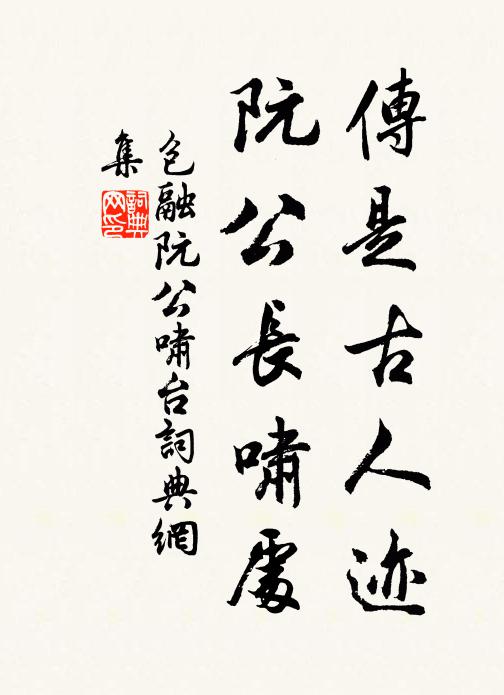 傳是古人迹
阮公長嘯處
包融阮公嘯台詞典網
集
詞典
网印